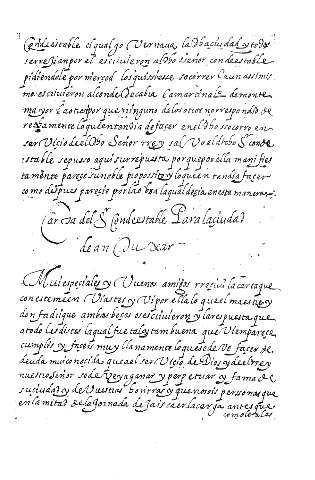 Condestable el qual go vernaua la dha ciudad y todos
se rresian por el escriuieron al dho señor condestable
pidiendole por merçed los quisiesse socorrer Y aun assimis
mo escriuieron al conde de cabra Y a martin alo de monte
mayor Y a otros por que ninguno de los otros no rrespondio de
rechamente lo que entendia de façer en el dho socorro en
seruicio del dho Señor rrey saluo el dcho Sr conde
stable se puso aqui su rrepuesta porque por ella manifies
tamente pareçe su noble proposito y lo que entendia façer
como despues pareçio por la obra la qual deçia en esta manera
Carta del Sr Condestable Para la ciudad
de an Duxar
Mui espeçiales y Buenos amigos rreçiui la carta que
con esteme en Uiastes y Vi por ella lo que el maestre y
don fadrique ambos a dos os escriuieron y la respuesta que
a todo les distes la qual fue tal y tan buena que Vien pareçe
cumplis y façeis muy llanamente lo que se de Ve façer de
deuda mui conoçida que a el seruiçio de Dios y del rrey
nuestro señor se de Ve y a ganar y perpetuar y fama de
su ciudad y de Vuestras honrras y que no seis personas que
en la mitad de la Jornada de Jais a er la cerga antes que
como leales